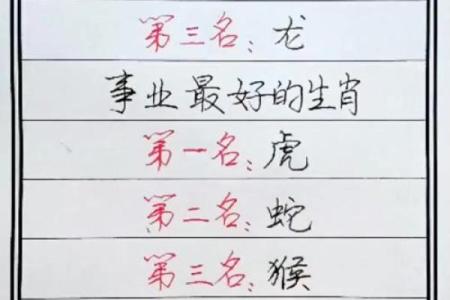 第三名：龙
事业最好的生肖
第一名：虎
第二名：蛇
第三名：猴